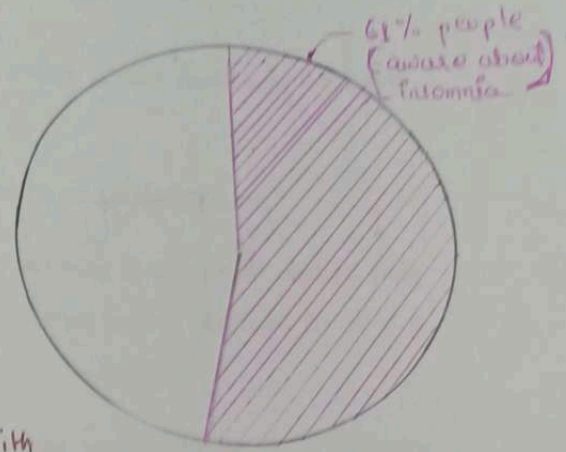 61% people
(aware about)
insomnia
ith